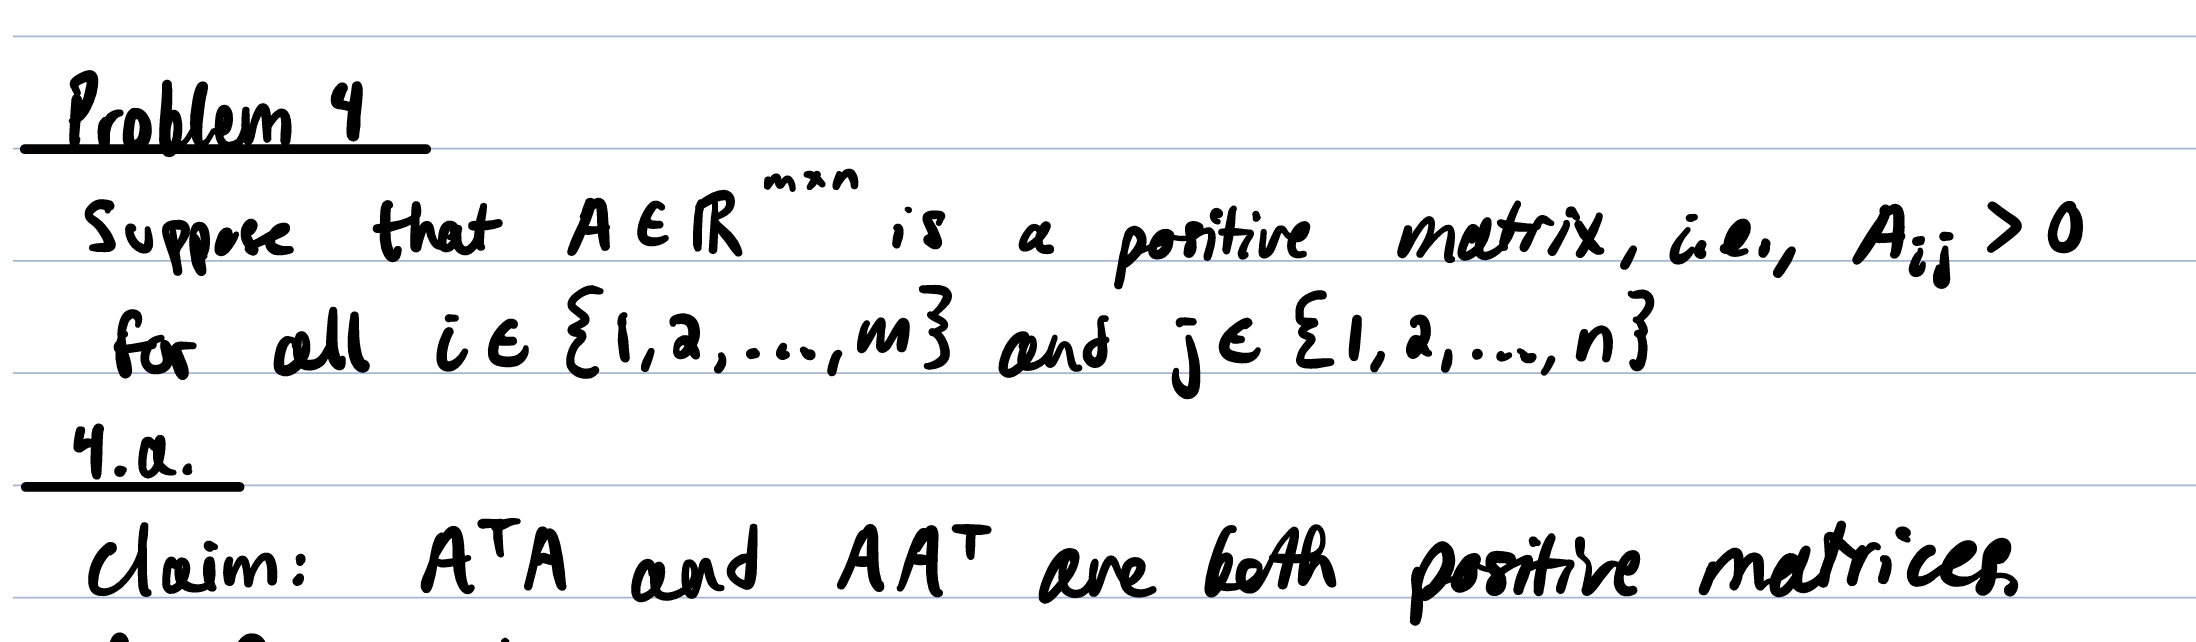 Problem 4
Suppose that A ∈ ℝ^{m×n} is a positive matrix, i.e., A_{ij} > 0
for all i ∈ {1,2,...,m} and j ∈ {1,2,...,n}
4.a.
Claim: AᵀA and AAᵀ are both positive matrices